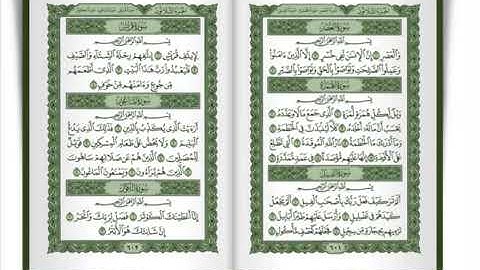 سُورَةُ العَصْرِ
بِسْمِ اللَّهِ الرَّحْمَٰنِ الرَّحِيمِ
وَالْعَصْرِ ١ إِنَّ الْإِنسَٰنَ لَفِى خُسْرٍ ٢ إِلَّا الَّذِينَ ءَامَنُوا
وَعَمِلُوا الصَّٰلِحَٰتِ وَتَوَاصَوْا بِالْحَقِّ وَتَوَاصَوْا بِالصَّبْرِ ٣
سُورَةُ الهُمَزَةِ
بِسْمِ اللَّهِ الرَّحْمَٰنِ الرَّحِيمِ
وَيْلٌ لِّكُلِّ هُمَزَةٍ لُّمَزَةٍ ١ الَّذِى جَمَعَ مَالًا وَعَدَّدَهُ ٢
يَحْسَبُ أَنَّ مَالَهُ أَخْلَدَهُ ٣ كَلَّا لَيُنبَذَنَّ فِى الْحُطَمَةِ ٤
وَمَا أَدْرَىٰكَ مَا الْحُطَمَةُ ٥ نَارُ اللَّهِ الْمُوقَدَةُ ٦ الَّتِى تَطَّلِعُ
عَلَى الْأَفْـِٔدَةِ ٧ إِنَّهَا عَلَيْهِم مُّؤْصَدَةٌ ٨ فِى عَمَدٍ مُّمَدَّدَةٍ ٩
سُورَةُ الفِيلِ
بِسْمِ اللَّهِ الرَّحْمَٰنِ الرَّحِيمِ
أَلَمْ تَرَ كَيْفَ فَعَلَ رَبُّكَ بِأَصْحَٰبِ الْفِيلِ ١ أَلَمْ يَجْعَلْ
كَيْدَهُمْ فِى تَضْلِيلٍ ٢ وَأَرْسَلَ عَلَيْهِمْ طَيْرًا أَبَابِيلَ ٣
تَرْمِيهِم بِحِجَارَةٍ مِّن سِجِّيلٍ ٤ فَجَعَلَهُمْ كَعَصْفٍ مَّأْكُولٍ ٥
٦٠١
سُورَةُ قُرَيْشٍ
بِسْمِ اللَّهِ الرَّحْمَٰنِ الرَّحِيمِ
لِإِيلَٰفِ قُرَيْشٍ ١ إِۦلَٰفِهِمْ رِحْلَةَ الشِّتَاءِ وَالصَّيْفِ
٢ فَلْيَعْبُدُوا رَبَّ هَٰذَا الْبَيْتِ ٣ الَّذِى أَطْعَمَهُم
مِّن جُوعٍ وَءَامَنَهُم مِّنْ خَوْفٍ ٤
سُورَةُ المَاعُونِ
بِسْمِ اللَّهِ الرَّحْمَٰنِ الرَّحِيمِ
أَرَءَيْتَ الَّذِى يُكَذِّبُ بِالدِّينِ ١ فَذَٰلِكَ الَّذِى يَدُعُّ
الْيَتِيمَ ٢ وَلَا يَحُضُّ عَلَىٰ طَعَامِ الْمِسْكِينِ ٣ فَوَيْلٌ
لِّلْمُصَلِّينَ ٤ الَّذِينَ هُمْ عَن صَلَاتِهِمْ سَاهُونَ
٥ الَّذِينَ هُمْ يُرَاءُونَ ٦ وَيَمْنَعُونَ الْمَاعُونَ ٧
سُورَةُ الكَوْثَرِ
بِسْمِ اللَّهِ الرَّحْمَٰنِ الرَّحِيمِ
إِنَّا أَعْطَيْنَٰكَ الْكَوْثَرَ ١ فَصَلِّ لِرَبِّكَ وَانْحَرْ ٢
إِنَّ شَانِئَكَ هُوَ الْأَبْتَرُ ٣
٦٠٢